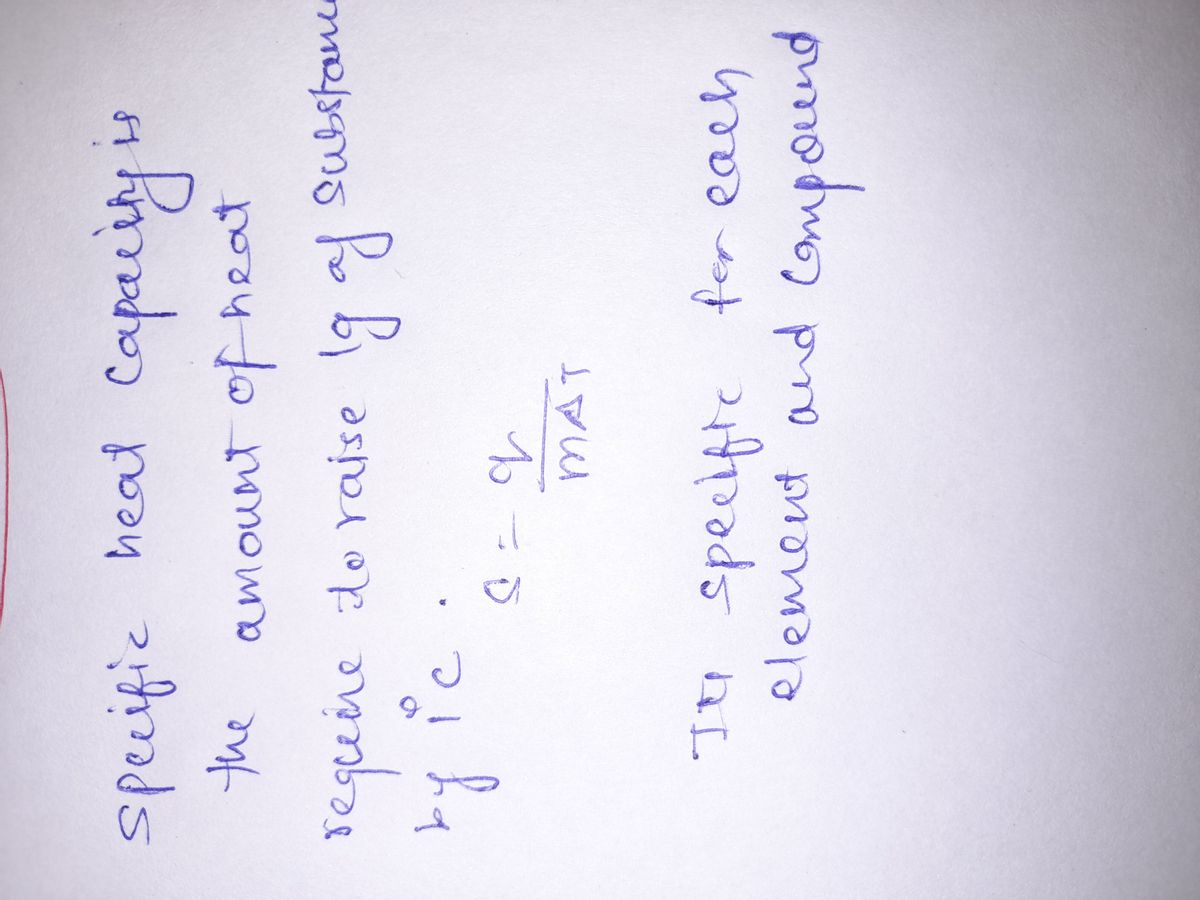 Specific heat capacity is
the amount of heat
require to raise 1g of substan
by 1°c.
s = q/mΔT
It specific for each
element and compound